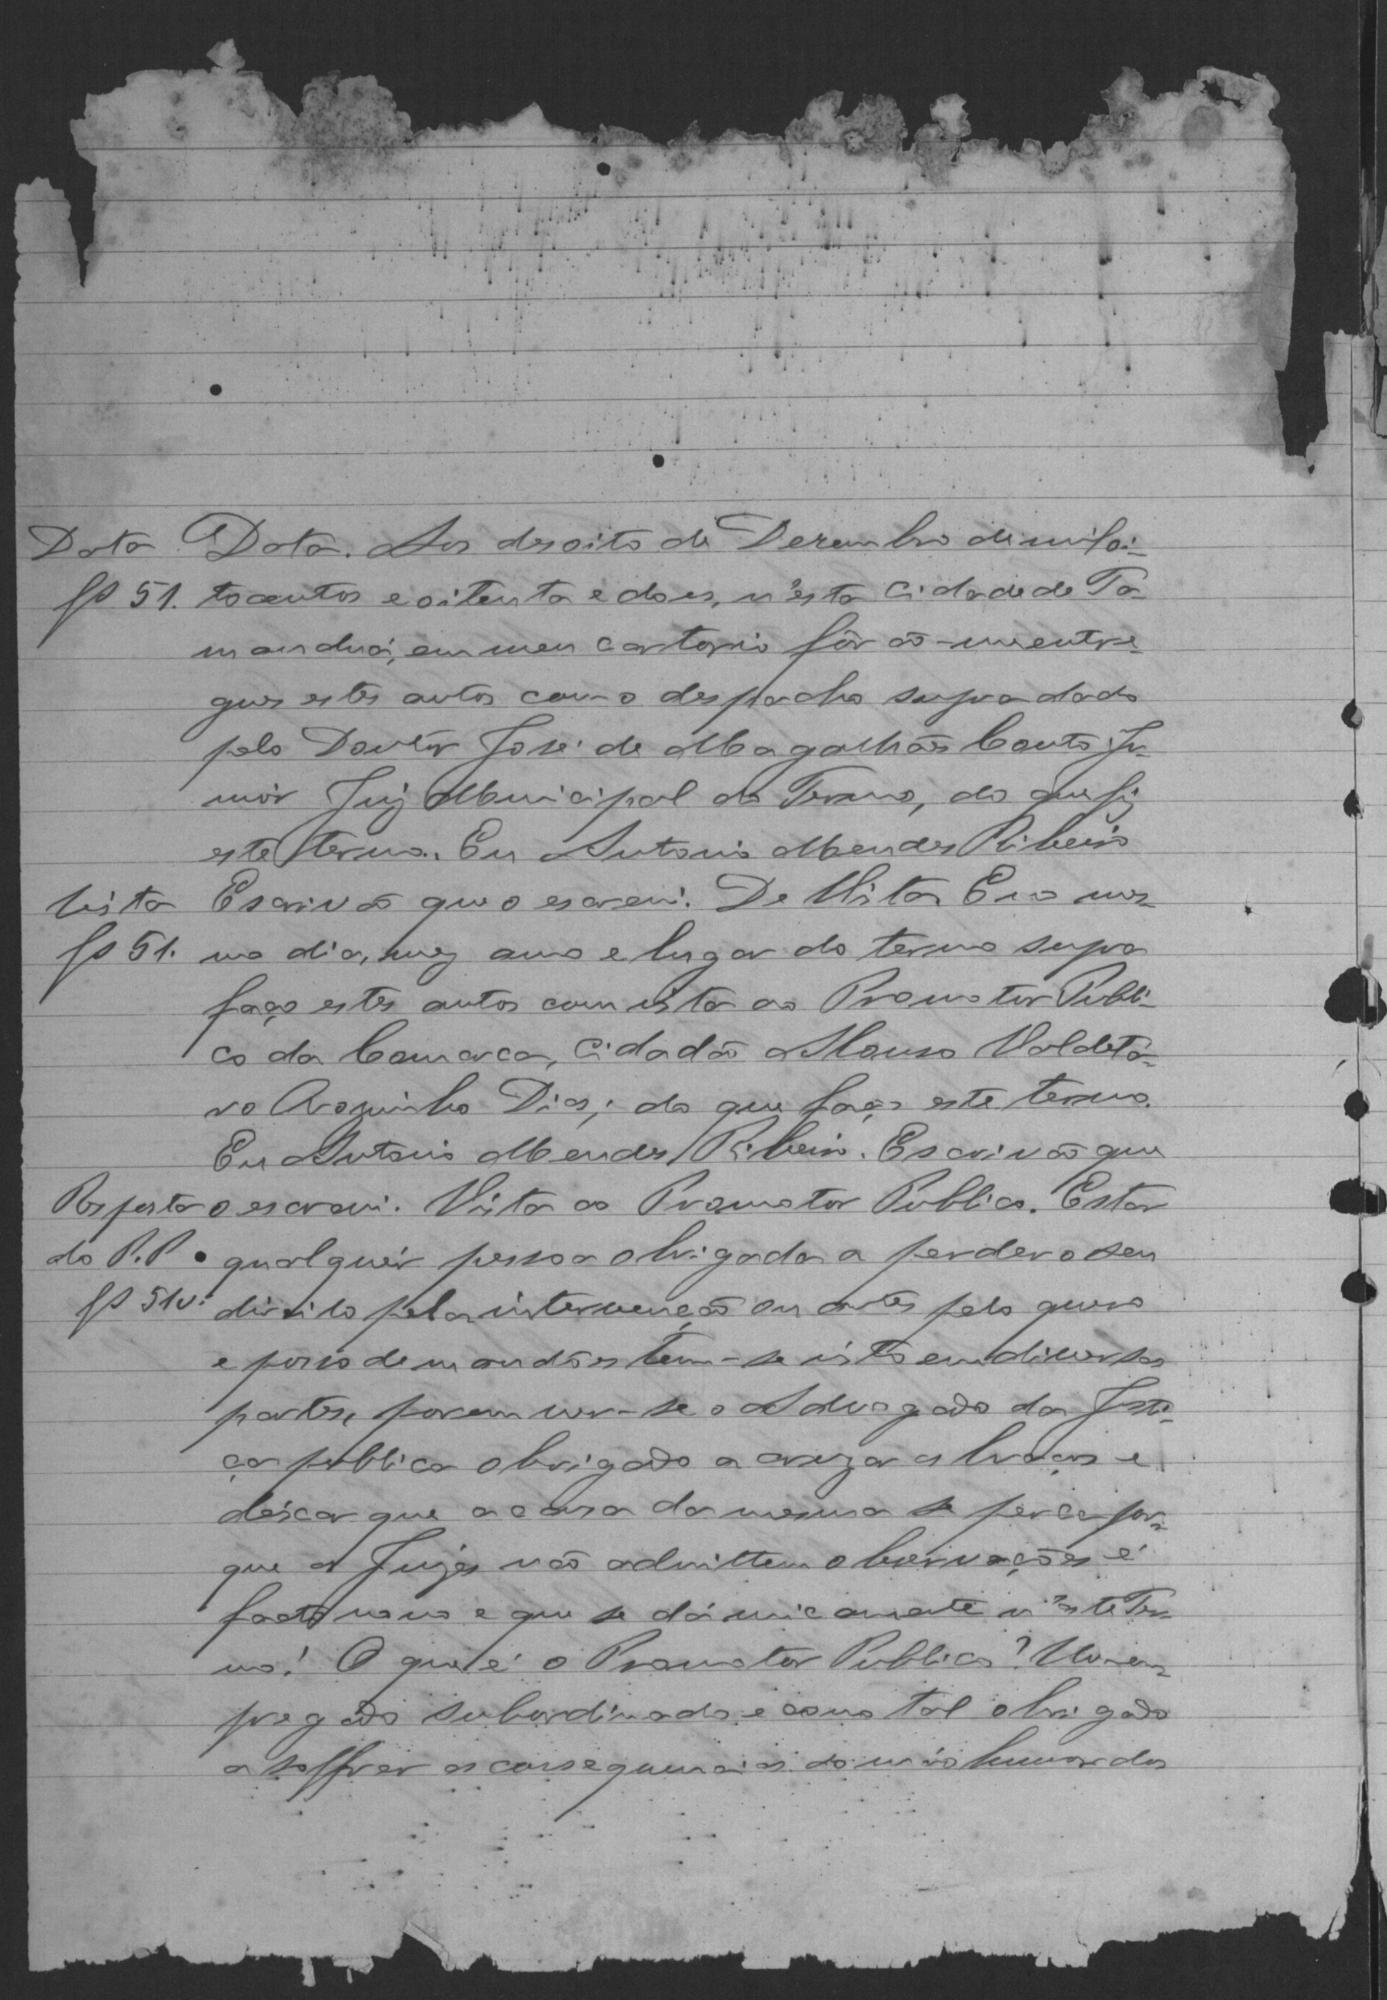 Data Data. Aos desoito de Dezembro de mil oi-
fs 51. tocentos e oitenta e dois, n'ésta Cidade de Ta-
manduá, em meu cartorio fôrão-me entre-
gues estes autos com o despacho supra dado
pelo Doutôr José de Magalhães Couto Ju-
niór Juiz Municipal do Termo, do que fiz
este termo. Eu Antonio Mendes Ribeiro
Vista Escrivão que o escrevi. De Vista. E no mes-
fs 51. mo dia, mez anno e lugar do termo supra
faço estes autos com vista ao Promotor Publi-
co da Comarca, Cidadão Affonso Valdeta-
ro Arguinho Dias; do que faço este termo.
Eu Antonio Mendes Ribeiro. Escrivão que
Resposta o escrevi. Vista ao Promotor Publico. Estar
do P.P. qualquér pessoa obrigada a perder o seu
fs 51v. direito pela intervenção ou antes pelo quero
e posso de mandões tem-se visto em diversas
partes, porem ver-se o Advogado da Justi-
ça publica obrigado a cruzar os braços e
deicar que a causa da mesma se perca por-
que os Juizes não admittem observações é
facto novo e que se dá unicamente n'éste Ter-
mo! O que é o Promotor Publico? Um em-
pregado subordinado e como tal obrigado
a soffrer as consequencias do máo humor dos